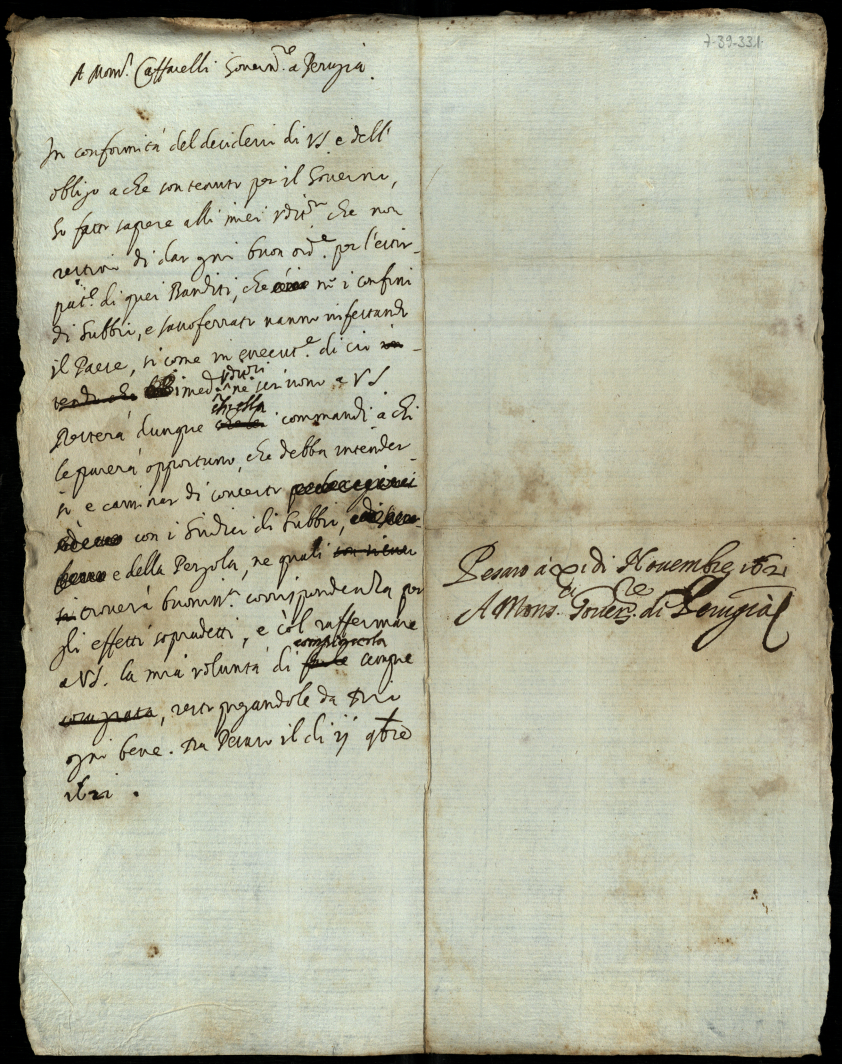 7-39-331
A Mons.r Caffarelli Govern.re a Perugia.
In conformità del desiderio di VS. e dell'
obligo a che son tenuto per il Governo,
ho fatto sapere alli miei Udit.ri che non
restino di dar ogni buon ord.e per l'estir-
pat.e di quei Banditi, che ne i confini
di Gubbio, e Sassoferrato vanno infestando
il Paese, si come in essecut.e di ciò
imed.mne scrivono a VS
Resterà dunque ch'ella commandi a chi
le parerà opportuno, che debba intender-
si e caminar di concerto
con i Giudici di Gubbio,
e della Pergola, ne quali
troverà buoniss.a corrispondenza per
gli effetti sopradetti, e còl raffermare
a VS. la mia volontà di compiacerla sempre
, resto pregandole da Dio
ogni bene. Da Pesaro il di ij 9bre
1621.
Pesaro à xi di Novembre 1621
A Mons. Gover.re di Perugia